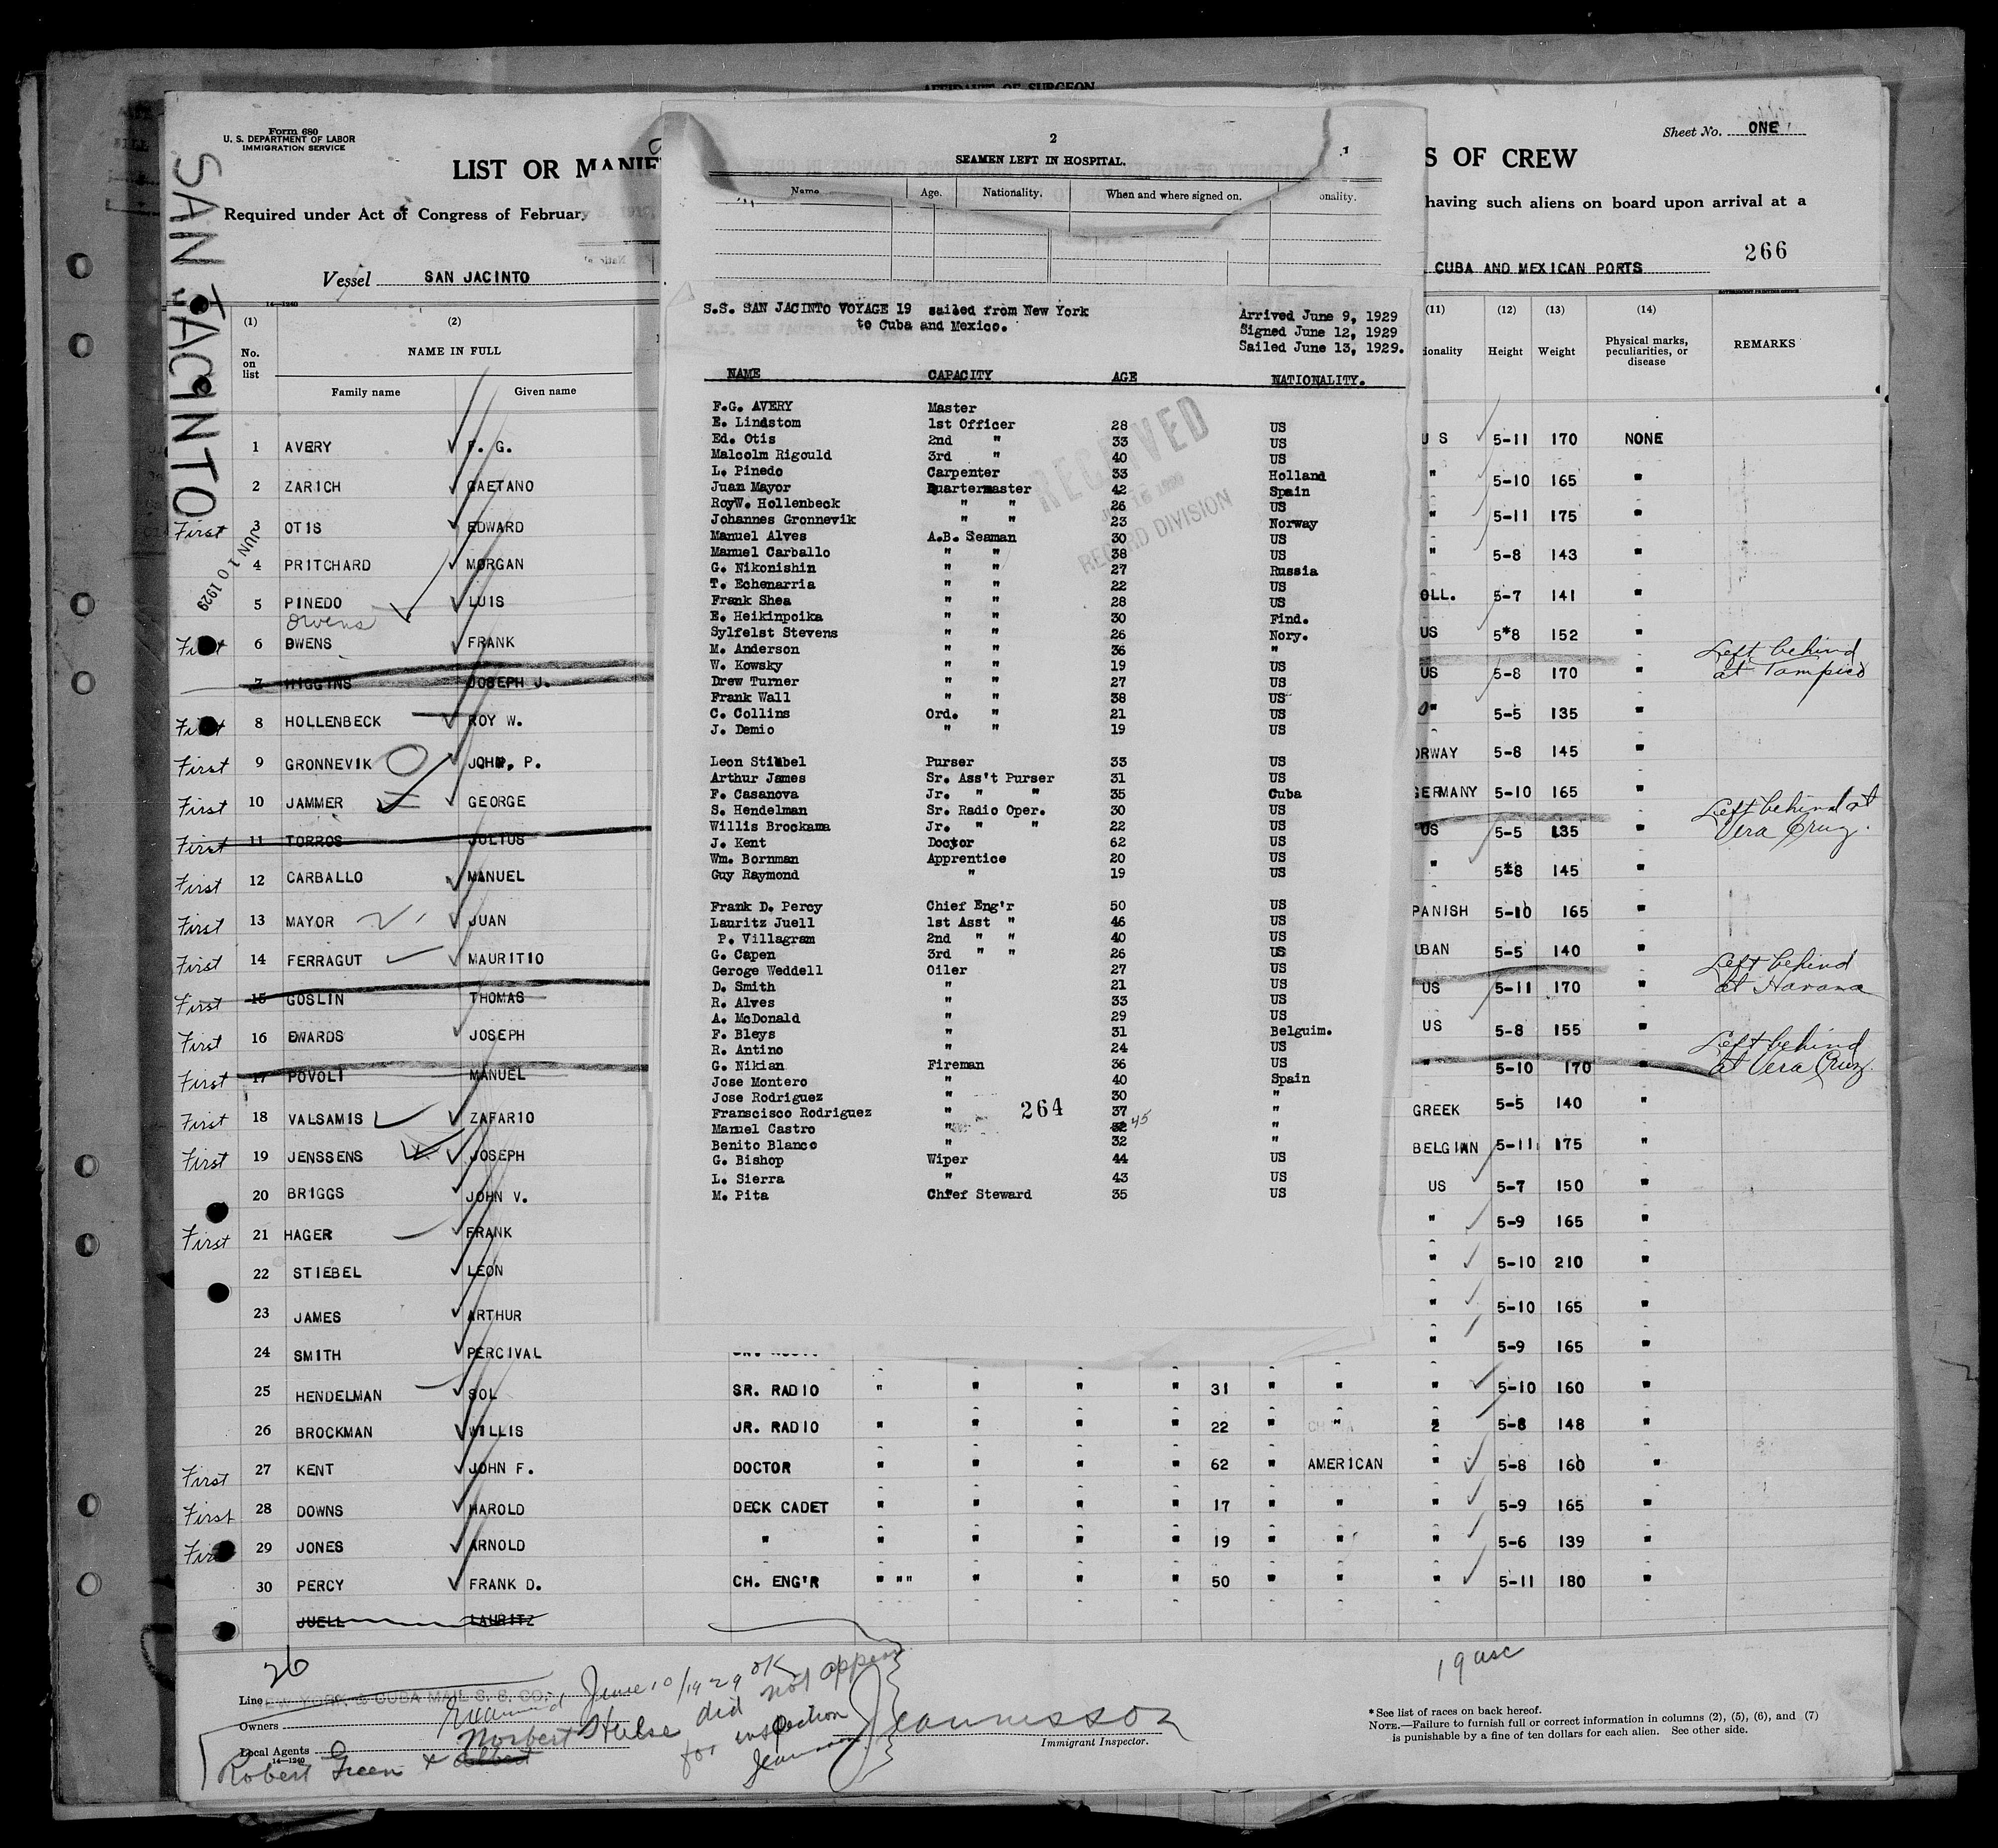 AFFIDAVIT OF SURGEON
Form 680
U. S. DEPARTMENT OF LABOR
IMMIGRATION SERVICE
LIST OR MANIF
S OF CREW
Sheet No. ONE
Required under Act of Congress of February
having such aliens on board upon arrival at a
266
Vessel SAN JACINTO
CUBA AND MEXICAN PORTS
SAN JACINTO
JUN 10 1929
14—1240
(1) (2) (11) (12) (13) (14)
No. on list
NAME IN FULL
Family name Given name
ionality Height Weight Physical marks, peculiarities, or disease REMARKS
1 AVERY F. G. U S 5-11 170 NONE
2 ZARICH GAETANO " 5-10 165 "
First 3 OTIS EDWARD " 5-11 175 "
4 PRITCHARD MORGAN " 5-8 143 "
5 PINEDO LUIS OLL. 5-7 141 "
Owens
First 6 OWENS FRANK US 5*8 152 "
7 HIGGINS JOSEPH J. US 5-8 170 " Left behind at Tampico
First 8 HOLLENBECK ROY W. " 5-5 135 "
First 9 GRONNEVIK JOHN, P. ORWAY 5-8 145 "
First 10 JAMMER GEORGE GERMANY 5-10 165 "
First 11 TORROS JULIUS US 5-5 135 " Left behind at Vera Cruz.
First 12 CARBALLO MANUEL " 5*8 145 "
First 13 MAYOR JUAN PANISH 5-10 165 "
First 14 FERRAGUT MAURITIO UBAN 5-5 140 "
First 15 GOSLIN THOMAS US 5-11 170 " Left behind at Havana
First 16 EWARDS JOSEPH US 5-8 155 "
First 17 POVOLI MANUEL " 5-10 170 " Left behind at Vera Cruz.
First 18 VALSAMIS ZAFARIO GREEK 5-5 140 "
First 19 JENSSENS JOSEPH BELGIAN 5-11 175 "
20 BRIGGS JOHN V. US 5-7 150 "
First 21 HAGER FRANK " 5-9 165 "
22 STIEBEL LEON " 5-10 210 "
23 JAMES ARTHUR " 5-10 165 "
24 SMITH PERCIVAL " 5-9 165 "
25 HENDELMAN SOL SR. RADIO " " " " 31 " " " 5-10 160 "
26 BROCKMAN WILLIS JR. RADIO " " " " 22 " " 2 5-8 148 "
First 27 KENT JOHN F. DOCTOR " " " " 62 " AMERICAN " 5-8 160 "
First 28 DOWNS HAROLD DECK CADET " " " " 17 " " " 5-9 165 "
First 29 JONES ARNOLD " " " " " 19 " " " 5-6 139 "
30 PERCY FRANK D. CH. ENG'R " "" " " " 50 " " " 5-11 180 "
JUELL LAURITZ
2
SEAMEN LEFT IN HOSPITAL.
Name Age. Nationality. When and where signed on. onality.
S.S. SAN JACINTO VOYAGE 19 sailed from New York
to Cuba and Mexico.
Arrived June 9, 1929
Signed June 12, 1929
Sailed June 13, 1929.
NAME CAPACITY AGE NATIONALITY.
F.G. AVERY Master
E. Lindstom 1st Officer 28 US
Ed. Otis 2nd " 33 US
Malcolm Rigould 3rd " 40 US
L. Pinedo Carpenter 33 Holland
Juan Mayor Quartermaster 42 Spain
RoyW. Hollenbeck " " 26 US
Johannes Gronnevik " " 23 Norway
Manuel Alves A.B. Seaman 30 US
Manuel Carballo " " 38 US
G. Nikonishin " " 27 Russia
T. Echenarria " " 22 US
Frank Shea " " 28 US
E. Heikinpoika " " 30 Find.
Sylfelst Stevens " " 26 Nory.
M. Anderson " " 36 "
W. Kowsky " " 19 US
Drew Turner " " 27 US
Frank Wall " " 38 US
C. Collins Ord. " 21 US
J. Demio " " 19 US
Leon Stiebel Purser 33 US
Arthur James Sr. Ass't Purser 31 US
F. Casanova Jr. " " 35 Cuba
S. Hendelman Sr. Radio Oper. 30 US
Willis Brockama Jr. " " 22 US
J. Kent Doctor 62 US
Wm. Bornman Apprentice 20 US
Guy Raymond " 19 US
Frank D. Percy Chief Eng'r 50 US
Lauritz Juell 1st Asst " 46 US
P. Villagram 2nd " " 40 US
G. Capen 3rd " " 26 US
Geroge Weddell Oiler 27 US
D. Smith " 21 US
R. Alves " 33 US
A. McDonald " 29 US
F. Bleys " 31 Belguim.
R. Antino " 24 US
G. Nikian Fireman 36 US
Jose Montero " 40 Spain
Jose Rodriguez " 30 "
Franscisco Rodriguez " 37 "
Manuel Castro " 32 45 "
Benito Blanco " 32 "
G. Bishop Wiper 44 US
L. Sierra " 43 US
M. Pita Chief Steward 35 US
264
RECEIVED
RECORD DIVISION
26
19 usc
Line EW YORK & CUBA MAIL S. S. CO.
Owners
Local Agents
14—1240
Examined June 10/1929 OK
Robert Green & Albert
Norbert Hulse did not appear
for inspection
Jeannisson
Jeannisson
Immigrant Inspector.
* See list of races on back hereof.
NOTE.—Failure to furnish full or correct information in columns (2), (5), (6), and (7)
is punishable by a fine of ten dollars for each alien. See other side.